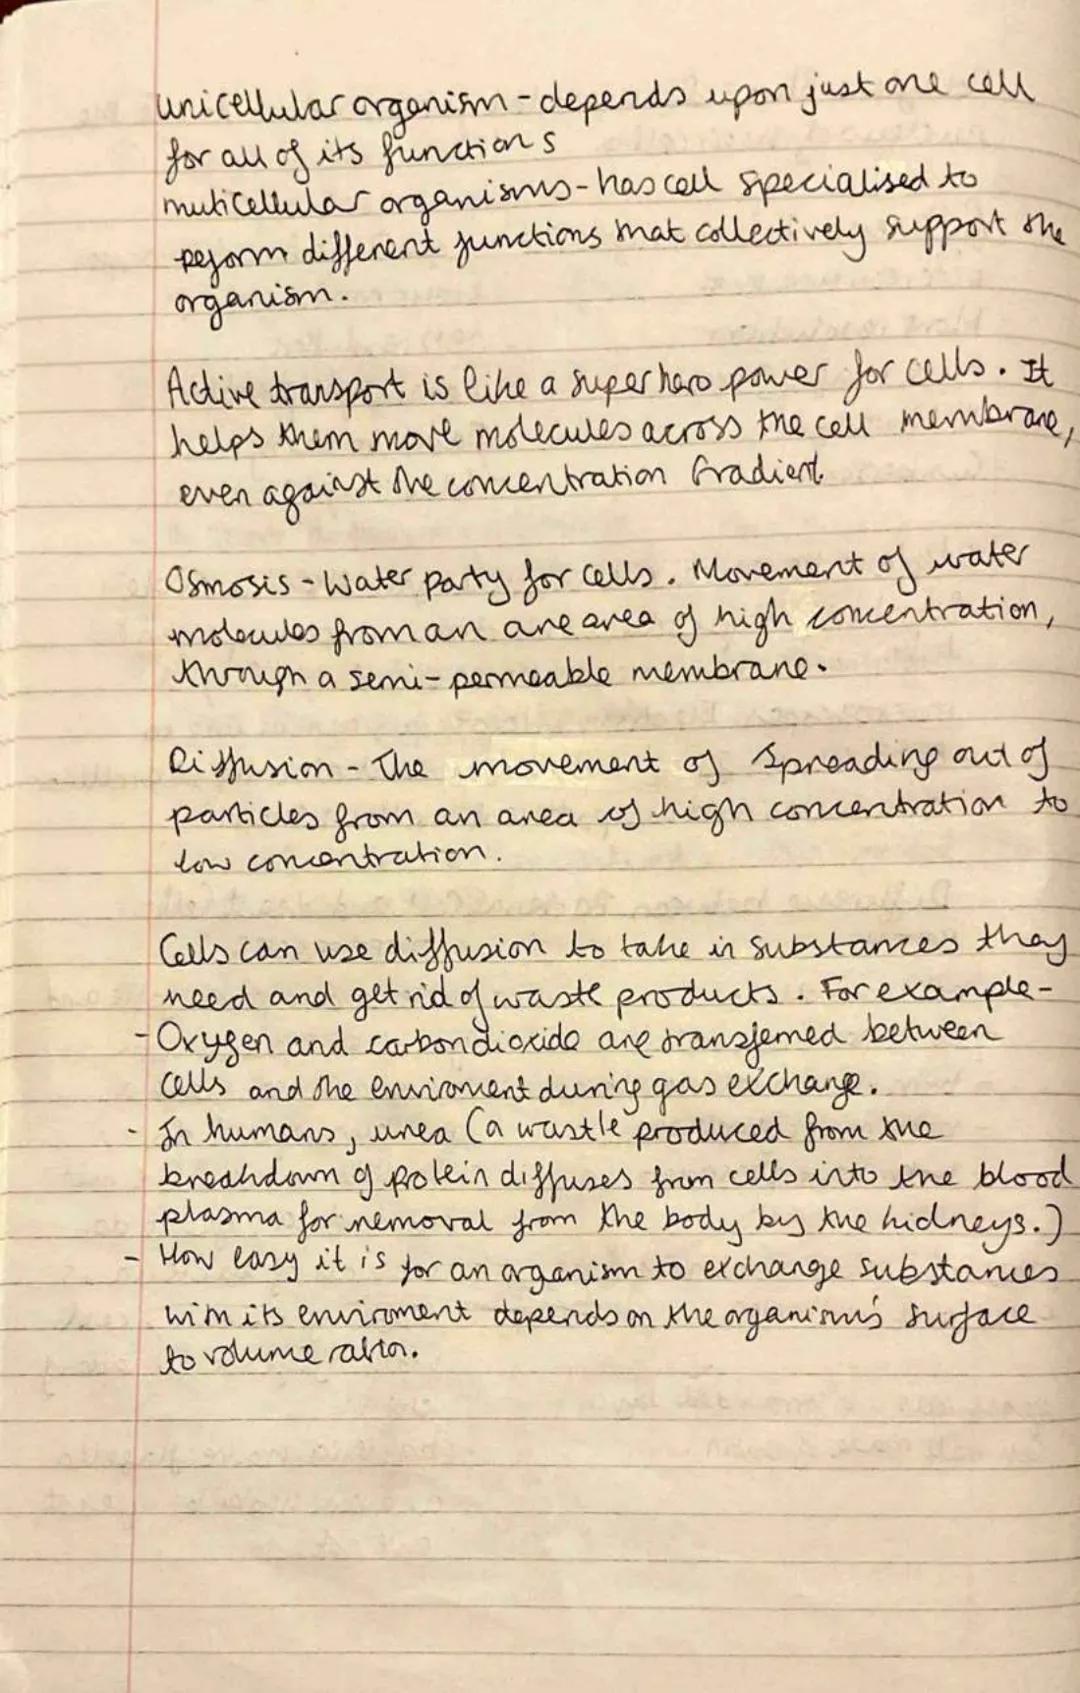 unicellular organism - depends upon just one cell
for all of its functions
muticellular organisms - has cell specialised to
peform different functions that collectively support the
organism.
Active transport is like a super hero power for cells. It
helps them move molecules across the cell membrane,
even against the concentration Gradient.
Osmosis - Water party for cells. Movement of water
molecules from an are area of high concentration,
through a semi-permeable membrane.
Diffusion - The movement of Spreading out of
particles from an area of high concentration to
low concentration.
Cells can use diffusion to take in substances they
need and get rid of waste products. For example-
- Oxygen and carbondioxide are transferred between
cells and the enviroment during gas exchange.
- In humans, urea (a wastle produced from the
breakdown of protein diffuses from cells into the blood
plasma for removal from the body by the kidneys.)
- How easy it is for an organism to exchange substances
with its enviroment depends on the organism's surface
to volume